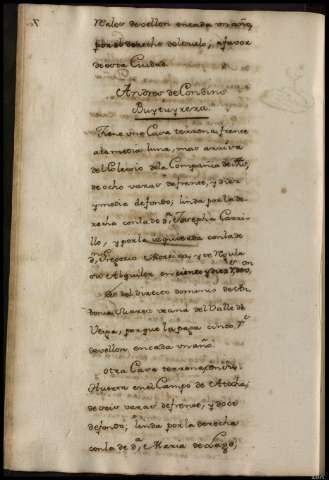 Reales de vellon en cada un año,
por el derecho del suelo, a favor
de esta Ciudad.
Andres de Londino
Tiene una Casa terrena frente
a la media luna, mas arriva
del Colegio de la Compañia de
de ocho varas de frente, y diez
y media de fondo, linda por la de
recha con la de d.ª Josepha Carri
llo, y por la izquierda con la de
d.n Gregorio Moreno, y se regula
su Alquiler en ciento y diez
es del directo dominio de
dona Suarez vecina del Valle de
Vespa, porque la paga cinco r.s
de vellon en cada un año.
Otra Casa terrena, con su
Huerta en el Campo de Atocha,
de seis varas de frente, y doce
de fondo; linda por la derecha
con la de d.ª Maria de